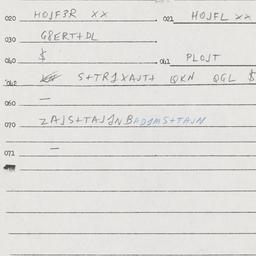 020 HOJF3R XX 021 HOJFL XX
030 G8ERT+DL
040 $ 061 PLOJT
062 S+TR1XAJT+ QKN QGL $
060 —
070 ZAJS+TAJ1NB
071 —